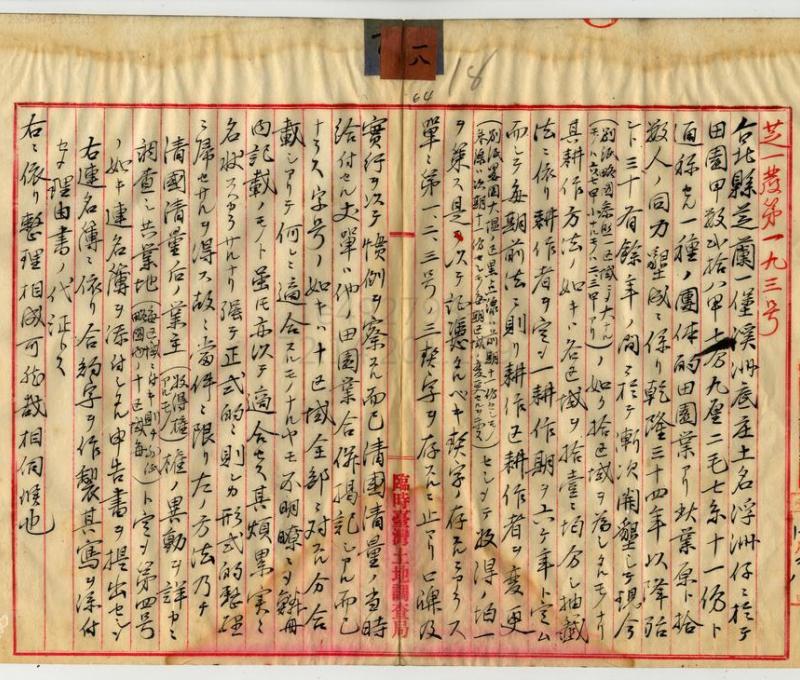 一八
18
64
芝一發第一九三号
台北縣芝蘭一堡溪洲底庄土名浮洲仔ニ於テ
田園甲数弐拾八甲七分九厘二毛七糸十一份ト
通称セル一種ノ團体的田園業アリ 業原ト拾
数人ノ同力墾成ニ係リ乾隆三十四年以降殆
ント三十有餘年ノ間ニ於テ漸次開墾シテ現今
ノ如ク拾区域ヲ為シタルモノナリ
其耕作方法ノ如キハ各区域ヲ拾壹ニ均分シ抽籤
法ニ依リ耕作者ヲ定メ一耕作期ヲ六ケ年ト定ム
而シテ毎期前法ニ則リ耕作区耕作者ヲ変更
セシメテ收得ノ均一
ヲ策ス是ヲ以テ記憑タルベキ契字ノ存スルニアラス
單ニ第一、二、三号ノ三契字ヲ存スルニ止マリ口牒及
實行ヲ以テ慣例ヲ察スル而已清國清量ノ当時
給付セル丈單ハ他ノ田園業合併揭記シアル而已
ナラス字号ノ如キハ十区域全部ニ対スル分合
載シアリテ何レニ適合スルモノナルヤモ不明瞭ニシテ
内記載ノモノト雖モ亦以テ適合セス其煩累実ニ
名状スヘカラサルナリ 強テ正式的ニ則シカ形式的整理
ニ帰セサルヲ得ス故ニ当件ニ限リ左ノ方法乃チ
清國清量后ノ業主 権ノ異動ヲ詳カニ
調査シ共業地 ト定メ第四号
ノ如キ連名簿ヲ添付シタル申告書ヲ提出セシメ
右連名簿ニ依リ合約字ヲ作製其寫ヲ添付
セメ理由書ノ代证トス
右ニ依リ整理相成可然哉相伺候也
臨時臺灣土地調查局